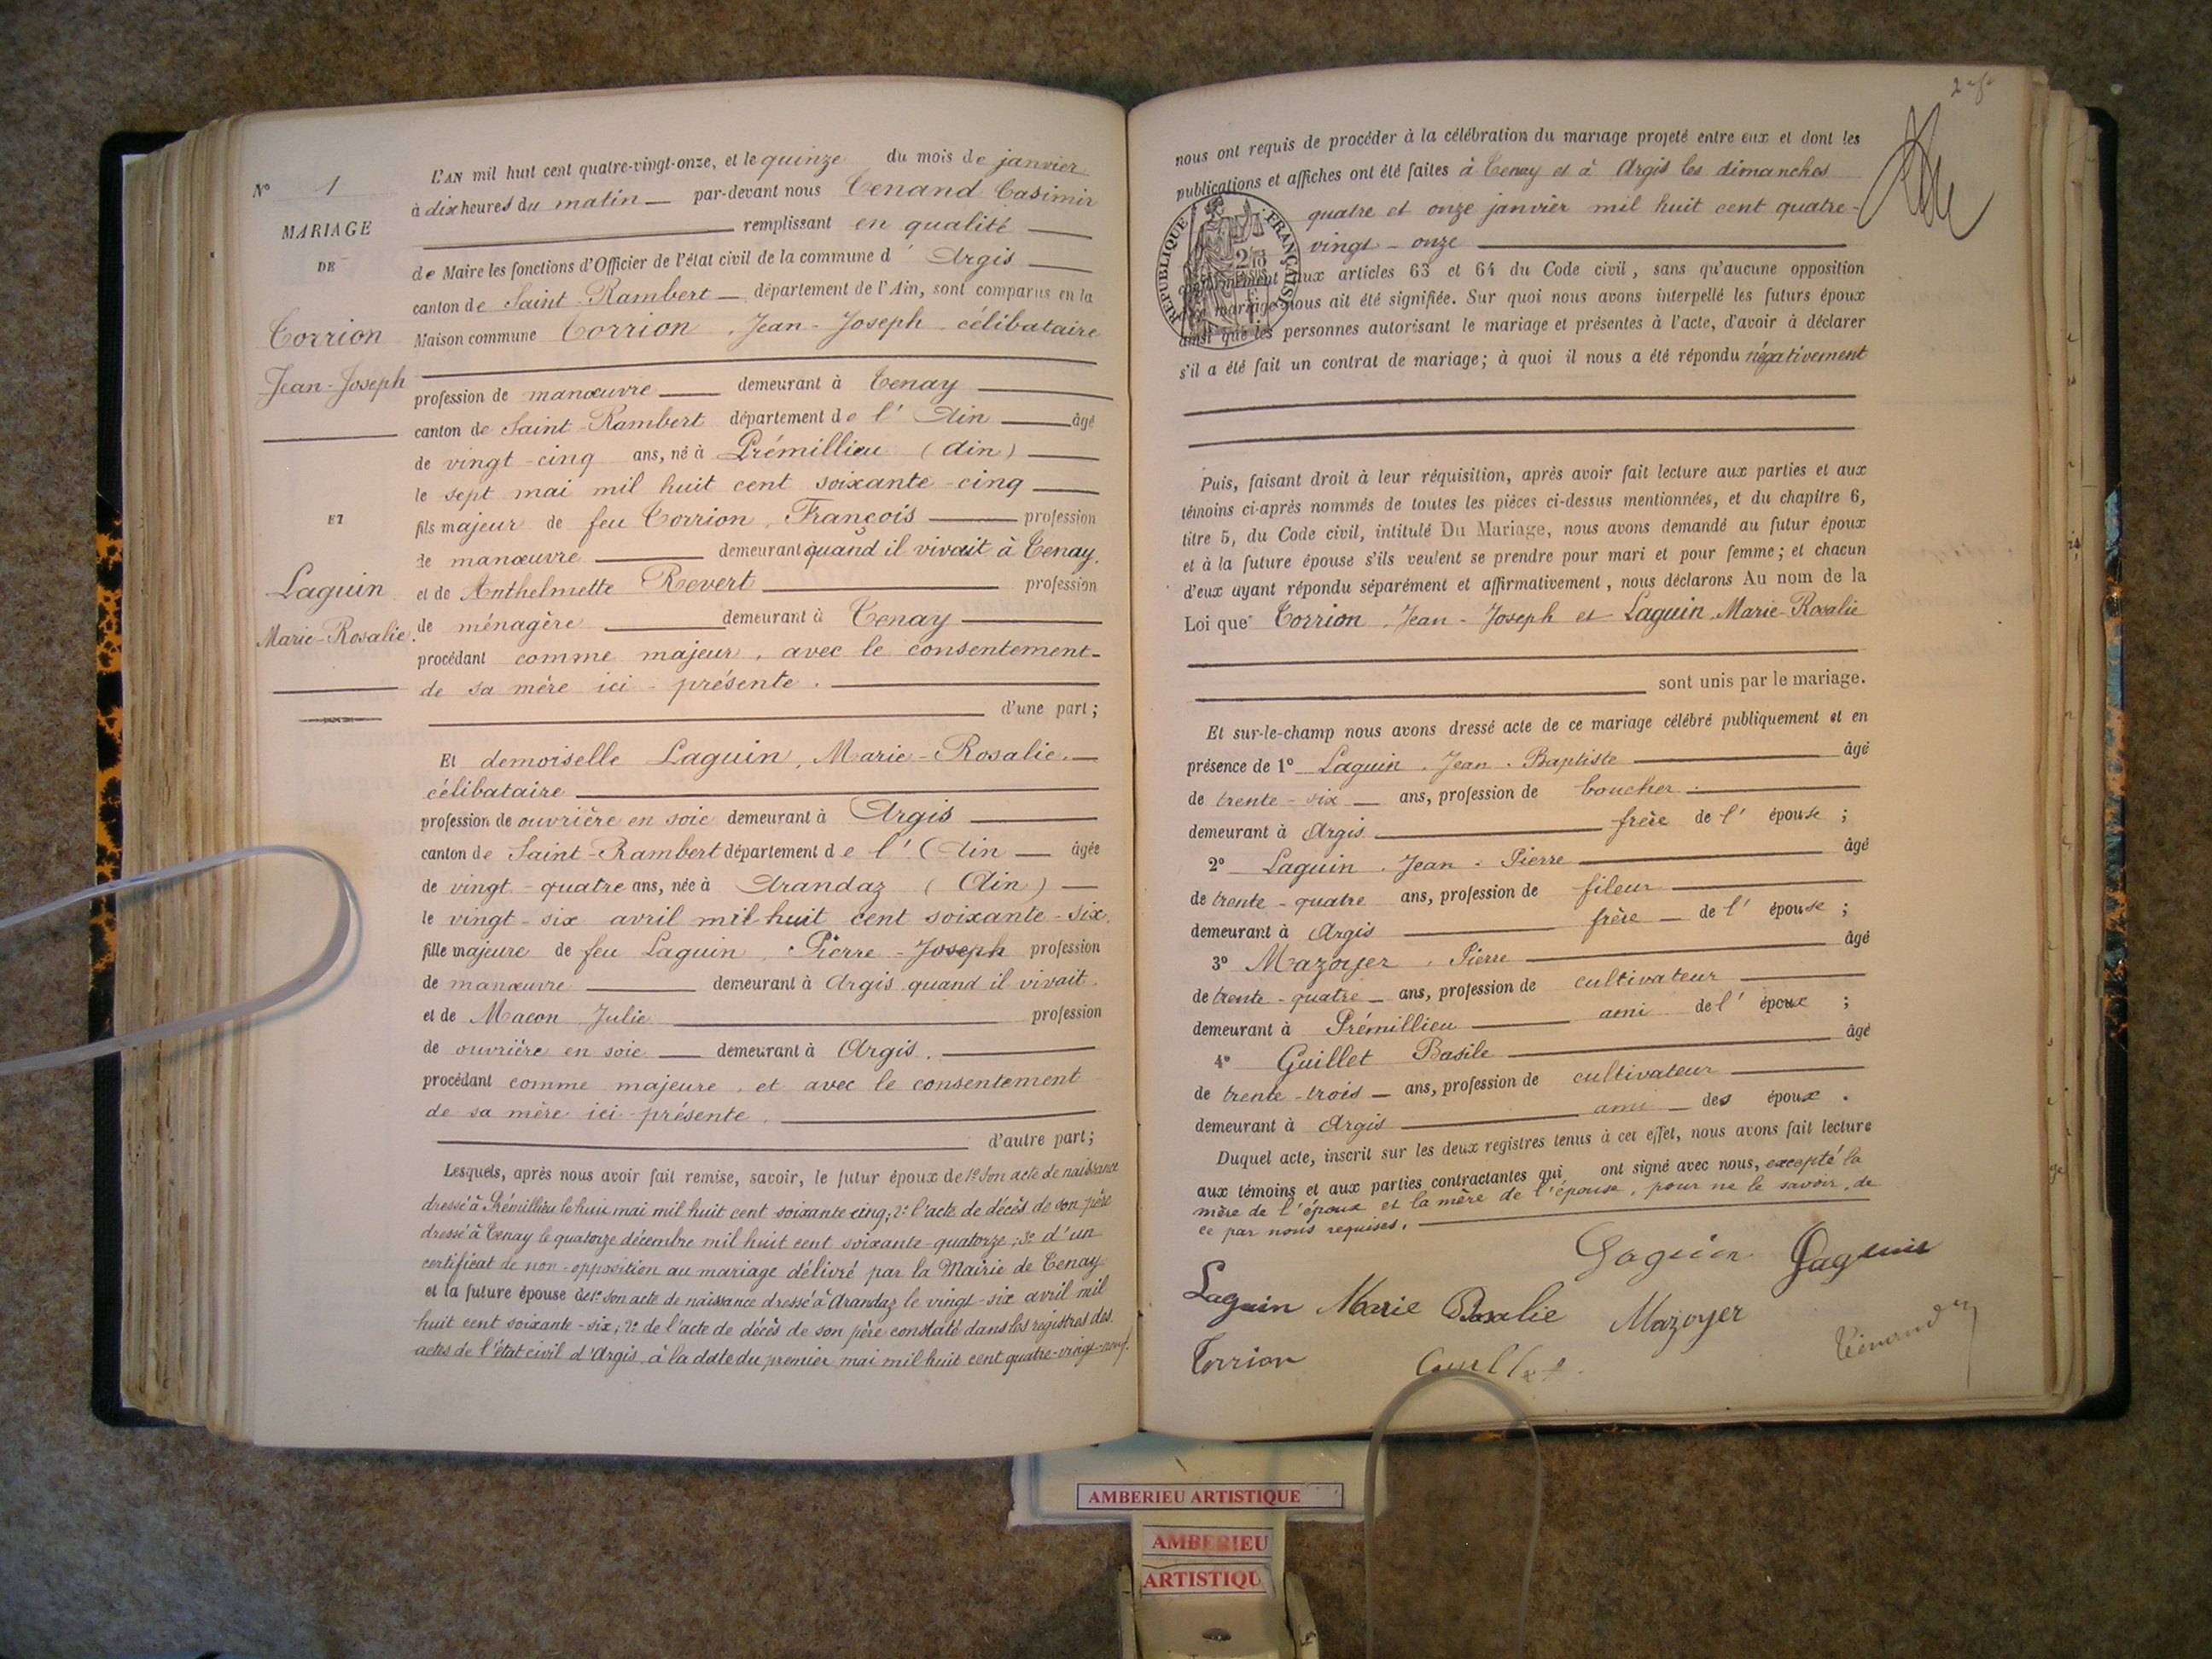 N° 1
MARIAGE
DE
Torrion
Jean-Joseph
ET
Laguin
Marie-Rosalie.
L'AN mil huit cent quatre-vingt-onze, et le quinze du mois de janvier
à dix heures du matin par-devant nous Tenand Casimir
remplissant en qualité
de Maire les fonctions d'Officier de l'état civil de la commune d'Argis
canton de Saint-Rambert département de l'Ain, sont comparus en la
Maison commune Torrion, Jean-Joseph, célibataire
profession de manœuvre demeurant à Tenay
canton de Saint-Rambert département de l'Ain âgé
de vingt-cinq ans, né à Prémillieu (Ain)
le sept mai mil huit cent soixante-cinq
fils majeur de feu Torrion, François profession
de manœuvre demeurant quand il vivait à Tenay.
et de Anthelmette Revert profession
de ménagère demeurant à Tenay
procédant comme majeur, avec le consentement
de sa mère ici-présente.
d'une part;
Et demoiselle Laguin, Marie-Rosalie.
célibataire
profession de ouvrière en soie demeurant à Argis
canton de Saint-Rambert département de l'Ain âgée
de vingt-quatre ans, née à Arandaz (Ain)
le vingt-six avril mil huit cent soixante-six.
fille majeure de feu Laguin, Pierre-Joseph profession
de manœuvre demeurant à Argis quand il vivait.
et de Macon Julie profession
de ouvrière en soie demeurant à Argis.
procédant comme majeure, et avec le consentement
de sa mère ici-présente.
d'autre part;
Lesquels, après nous avoir fait remise, savoir, le futur époux de 1° Son acte de naissance
dressé à Prémillieu le huit mai mil huit cent soixante cinq; 2° l'acte de décès de son père
dressé à Tenay le quatorze décembre mil huit cent soixante-quatorze; 3° d'un
certificat de non-opposition au mariage délivré par la Mairie de Tenay
et la future épouse de 1° son acte de naissance dressé à Arandaz le vingt-six avril mil
huit cent soixante-six; 2° de l'acte de décès de son père constaté dans les registres des
actes de l'état civil d'Argis à la date du premier mai mil huit cent quatre-vingt-neuf.
nous ont requis de procéder à la célébration du mariage projeté entre eux et dont les
publications et affiches ont été faites à Tenay et à Argis les dimanches
quatre et onze janvier mil huit cent quatre-
vingt-onze
RÉPUBLIQUE FRANÇAISE
conformément aux articles 63 et 64 du Code civil, sans qu'aucune opposition
au mariage nous ait été signifiée. Sur quoi nous avons interpellé les futurs époux
ainsi que les personnes autorisant le mariage et présentes à l'acte, d'avoir à déclarer
s'il a été fait un contrat de mariage; à quoi il nous a été répondu négativement
Puis, faisant droit à leur réquisition, après avoir fait lecture aux parties et aux
témoins ci-après nommés de toutes les pièces ci-dessus mentionnées, et du chapitre 6,
titre 5, du Code civil, intitulé Du Mariage, nous avons demandé au futur époux
et à la future épouse s'ils veulent se prendre pour mari et pour femme; et chacun
d'eux ayant répondu séparément et affirmativement, nous déclarons Au nom de la
Loi que Torrion, Jean-Joseph et Laguin, Marie-Rosalie
sont unis par le mariage.
Et sur-le-champ nous avons dressé acte de ce mariage célébré publiquement et en
présence de 1° Laguin, Jean-Baptiste âgé
de trente-six ans, profession de boucher
demeurant à Argis frère de l'épouse;
2° Laguin, Jean-Pierre âgé
de trente-quatre ans, profession de fileur
demeurant à Argis frère de l'épouse;
3° Mazoyer, Pierre âgé
de trente-quatre ans, profession de cultivateur
demeurant à Prémillieu ami de l'époux;
4° Guillet Basile âgé
de trente-trois ans, profession de cultivateur
demeurant à Argis ami des époux.
Duquel acte, inscrit sur les deux registres tenus à cet effet, nous avons fait lecture
aux témoins et aux parties contractantes qui ont signé avec nous, excepté la
mère de l'époux et la mère de l'épouse, pour ne le savoir, de
ce par nous requises.
Laguin Laguin
Laguin Marie Rosalie Mazoyer
Torrion Guillet Tenand
AMBERIEU ARTISTIQUE
AMBERIEU
ARTISTIQU